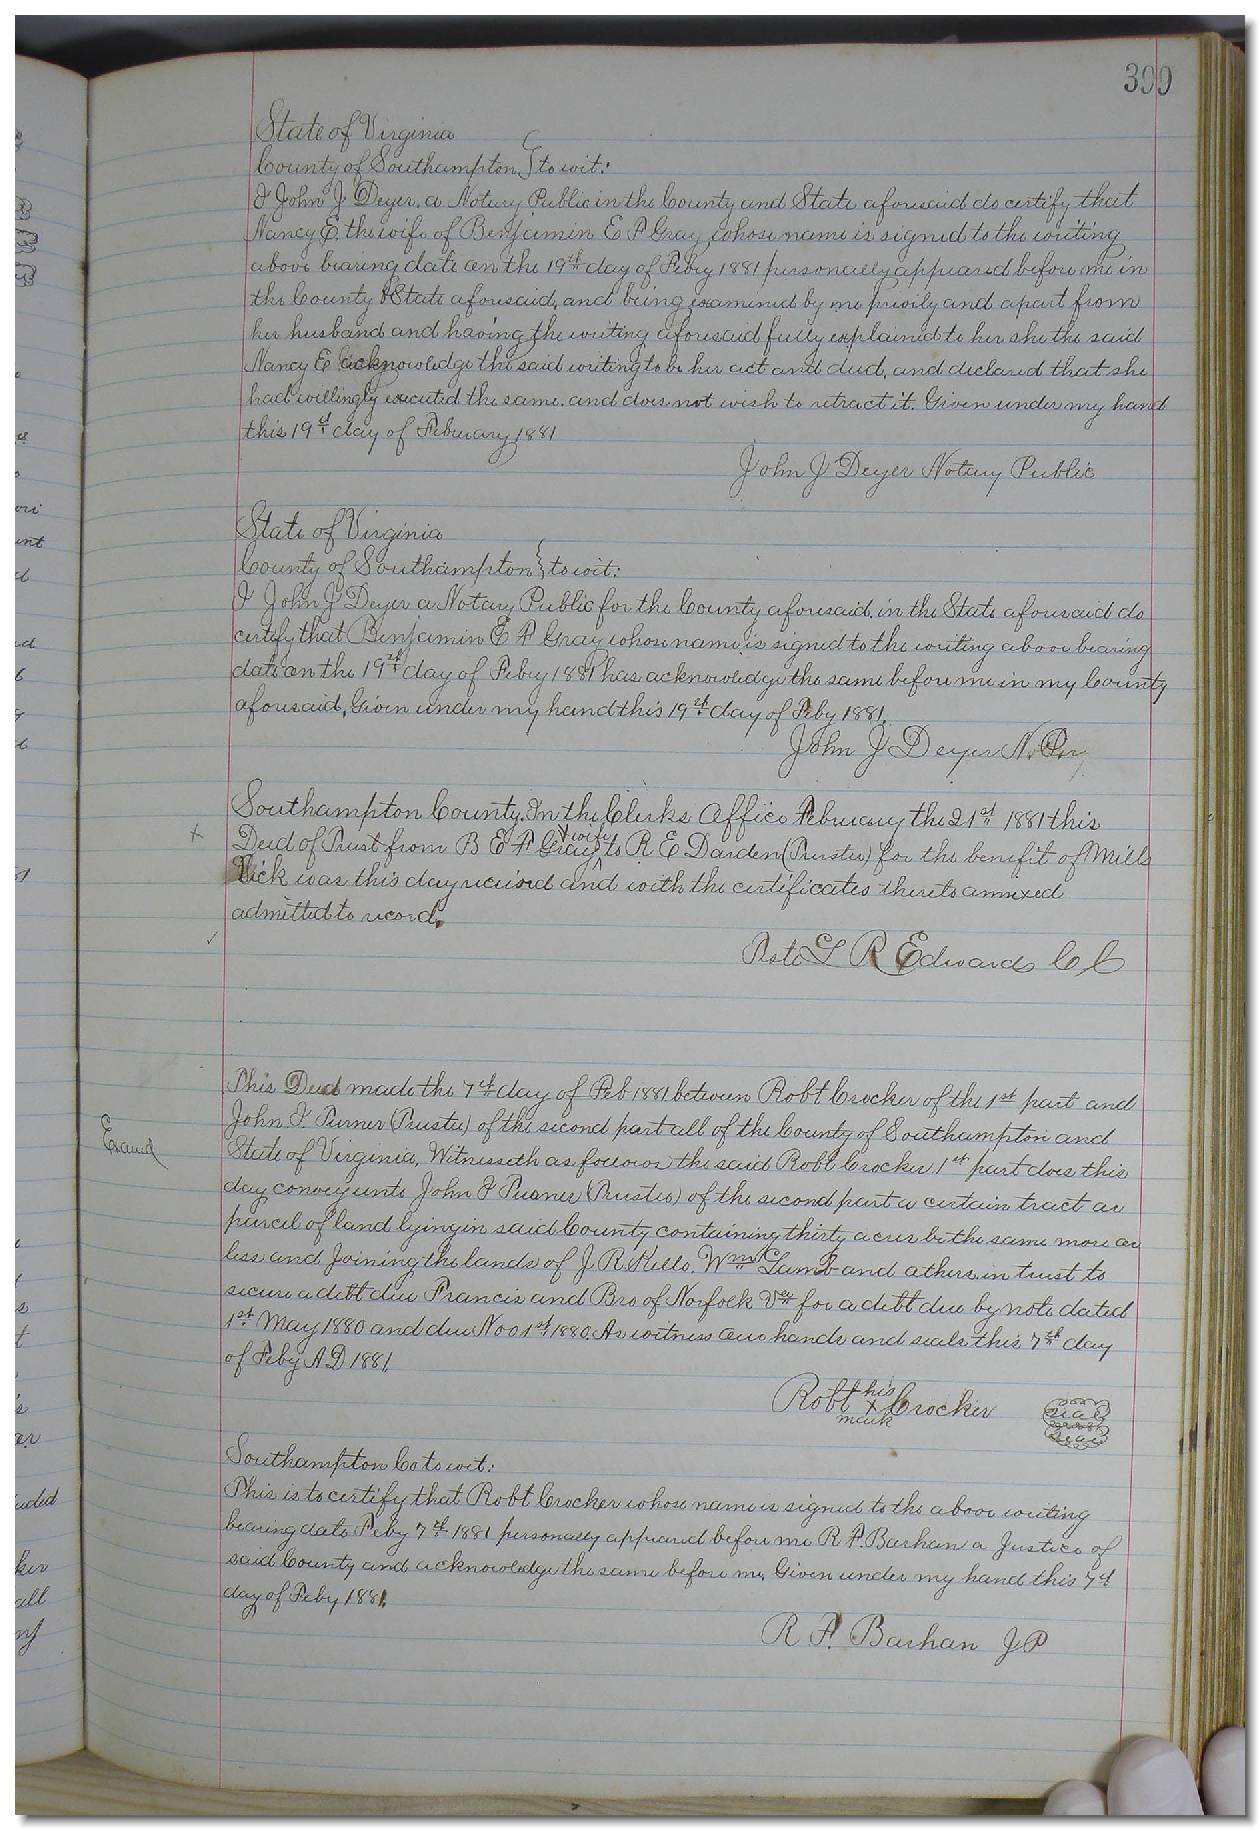 309
State of Virginia
County of Southampton, } to wit:
I John J Deyer, a Notary Public in the County and State aforesaid do certify that
Nancy E. the wife of Benjamin E P Gray whose name is signed to the writing
above bearing date on the 19th day of Feby 1881 personally appeared before me in
the County & State aforesaid, and being examined by me privily and apart from
her husband and having the writing aforesaid fully explained to her she the said
Nancy E acknowledge the said writing to be her act and deed, and declared that she
had willingly executed the same. and does not wish to retract it. Given under my hand
this 19th day of February 1881
John J Deyer Notary Public
State of Virginia
County of Southampton } to wit:
I John J Deyer a Notary Public for the County aforesaid, in the State aforesaid do
certify that Benjamin E P Gray whose name is signed to the writing above bearing
date on the 19th day of Feby 1881 has acknowledge the same before me in my County
aforesaid, Given under my hand this 19th day of Feby 1881.
John J Deyer N.
Southampton County. In the Clerks Office February the 21st 1881 this
Deed of Trust from B E P Gray & wife to R E Darden (Trustee) for the benefit of Mills
Vick was this day received and with the certificates thereto annexed
admitted to record.
L R Edwards C C
This Deed made the 7th day of Feb 1881 between Robt Crocker of the 1st part and
John F. Turner (Trustee) of the second part all of the County of Southampton and
State of Virginia, Witnesseth as follows the said Robt Crocker 1st part does this
day convey unto John F Turner (Trustee) of the second part a certain tract or
parcel of land lying in said County containing thirty acres be the same more or
less and Joining the lands of J. R. Kello, Wm C Lamb and others in trust to
secure a debt due Francis and Bro of Norfolk Va for a debt due by note dated
1st May 1880 and due Nov 1st 1880. As witness our hands and seals this 7th day
of Feby A D 1881
Robt his x mark Crocker seal
seal
Southampton Co to wit:
This is to certify that Robt Crocker whose name is signed to the above writing
bearing date Feby 7th 1881 personally appeared before me R. F. Barham a Justice of
said County and acknowledge the same before me, Given under my hand this 7th
day of Feby 1881.
R F. Barham J P